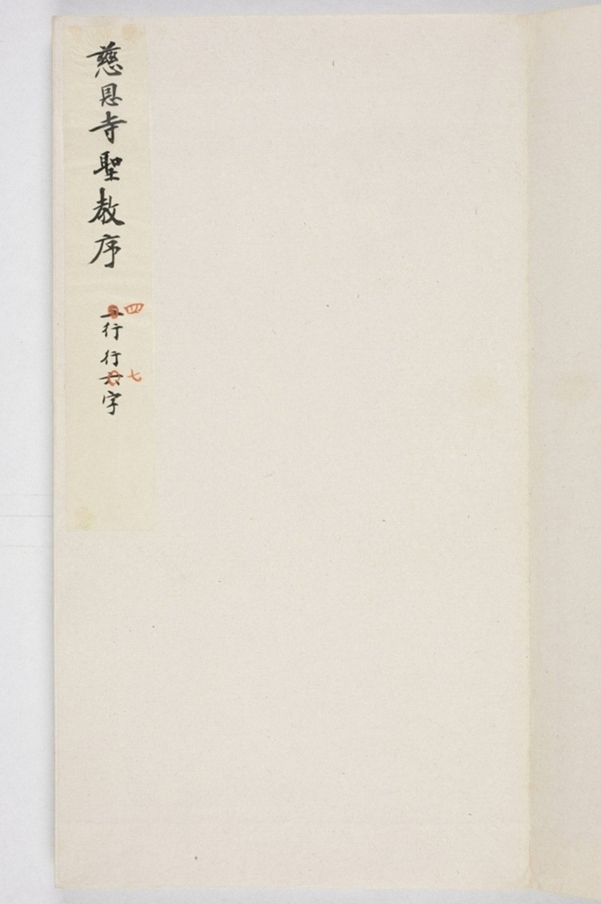 慈恩寺聖教序
五行行六字
四
七